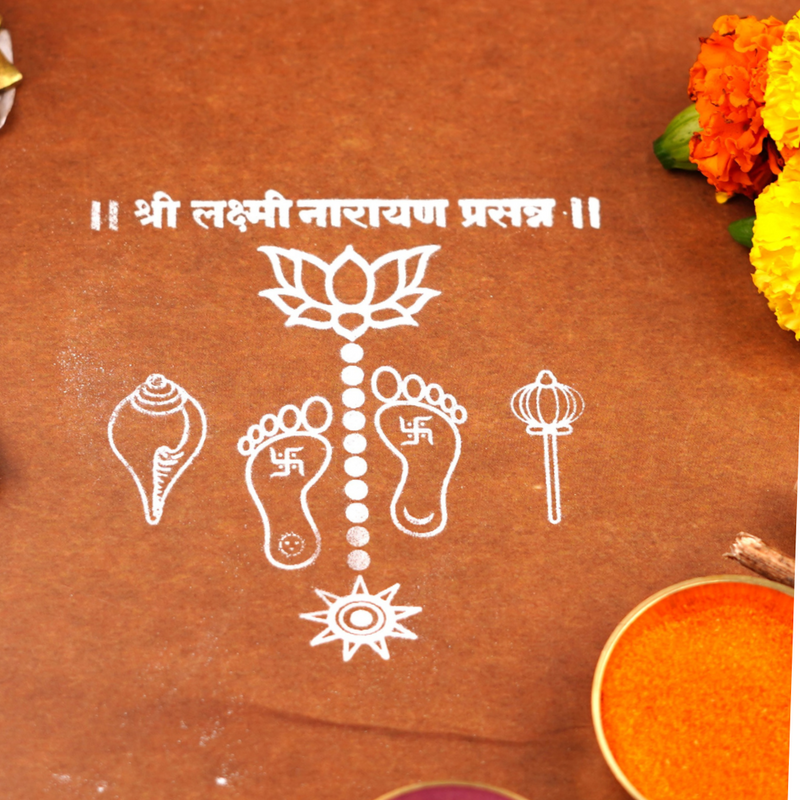 || श्री लक्ष्मी नारायण प्रसन्न ||